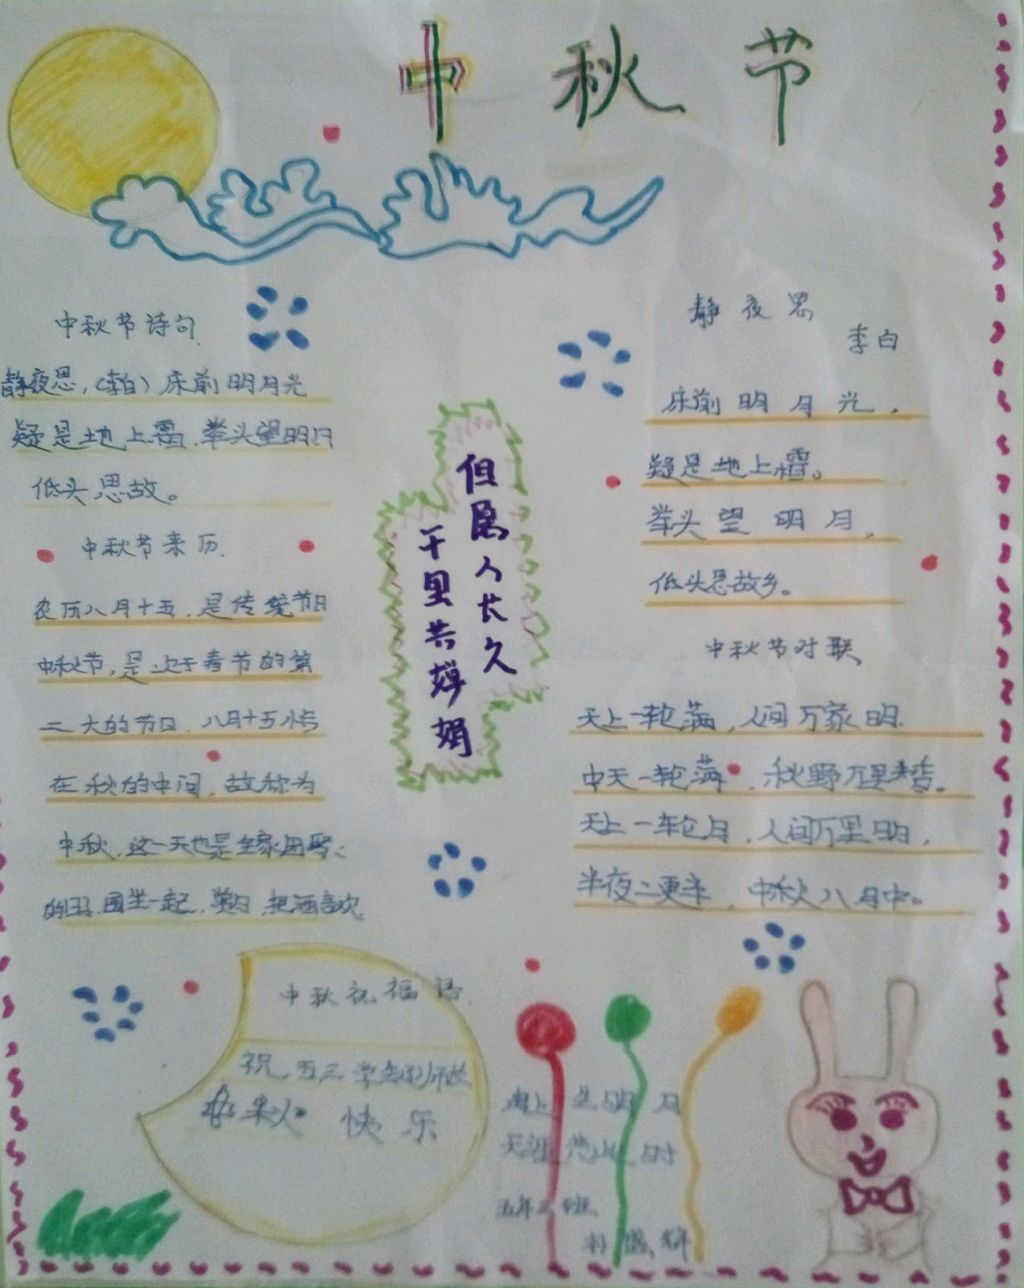 中秋节
中秋节诗句
静夜思，（李白）床前明月光
疑是地上霜．举头望明月
低头思故。
中秋节来历．
农历八月十五．是传统节日
中秋节，是次于春节的第
二大的节日．八月十五恰
在秋的中间，故称为
中秋．这一天也是全家团聚
的日子．围坐一起．赏月．把酒言欢
但愿人长久
千里共婵娟
静夜思
李白
床前明月光，
疑是地上霜。
举头望明月，
低头思故乡。
中秋节对联
天上一轮满，人间万家明．
中天一轮满，秋野万里香。
天上一轮月，人间万里明，
半夜二更半，中秋八月中。
中秋祝福语．
祝五三
中秋快乐
海上生明月
天涯共此时
五年三班